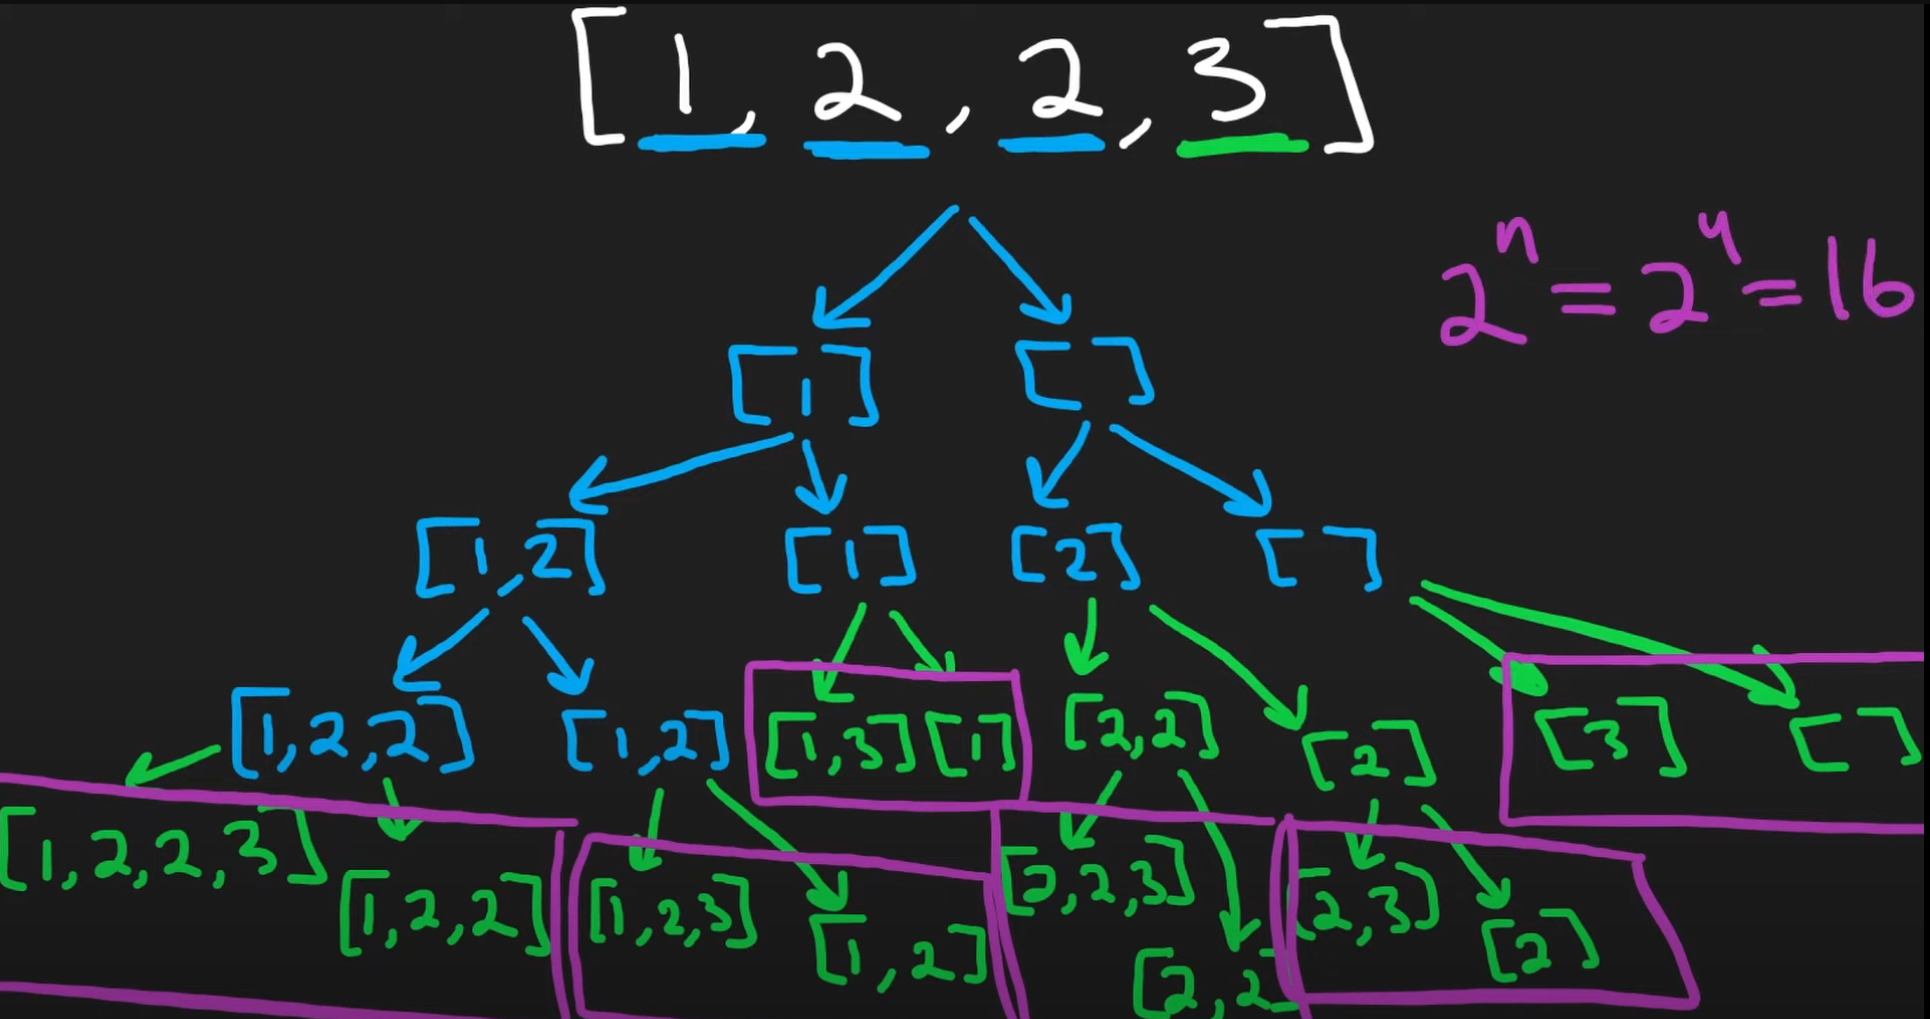 [1, 2, 2, 3]
2^n = 2^4 = 16
[1] [ ]
[1,2] [1] [2] [ ]
[1,2,2] [1,2] [1,3] [1] [2,2] [2] [3] [ ]
[1,2,2,3] [1,2,2] [1,2,3] [1,2] [2,2,3] [2,2] [2,3] [2]